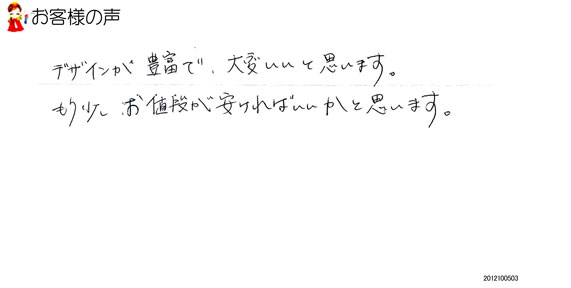 お客様の声
デザインが豊富で、大変いいと思います。
もう少し、お値段が安ければいいかと思います。
2012100503